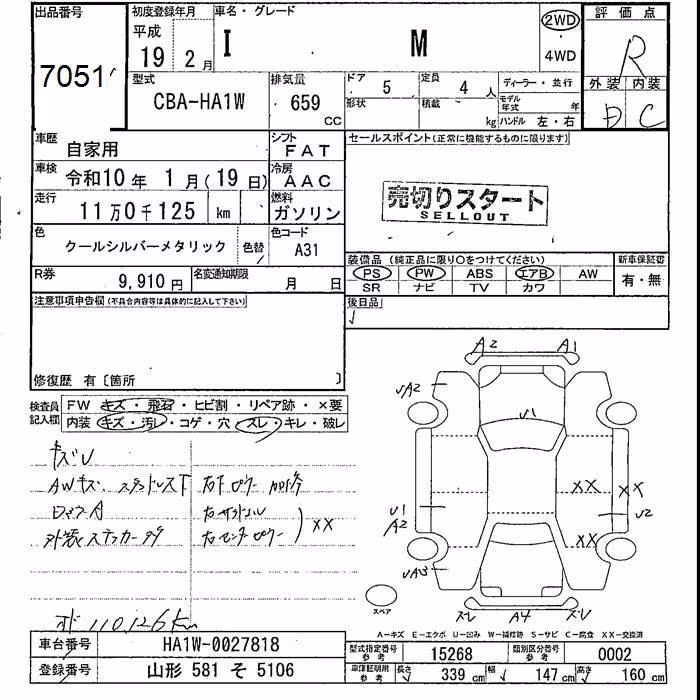 出品番号
7051
初度登録年月
平成
19 2月
車名・グレード
I M
2WD
4WD
評価点
R
外装 内装
D C
型式
CBA-HA1W
排気量
659
CC
ドア 5
形状
定員 4 人
積載 kg
ディーラー・並行
モデル年式 年
ハンドル 左・右
車歴
自家用
シフト
FAT
車検
令和10年 1月(19日)
冷房
AAC
走行
11万0千125 km
燃料
ガソリン
色
クールシルバーメタリック
色替
色コード
A31
R券
9,910円
名変通知期限
月 日
セールスポイント(正常に機能するものに限ります)
売切りスタート
SELLOUT
装備品 (純正品に限り○をつけてください)
新車保証書
PS PW ABS エアB AW
SR ナビ TV カワ
有・無
後日品
注意事項申告欄(不具合内容等は具体的に記入して下さい)
修復歴 有〔箇所 〕
検査員記入欄
FW キズ・飛石・ヒビ割・リペア跡・×要
内装 キズ・汚レ・コゲ・穴・スレ・キレ・破レ
キズU
AWキズ
XX
110,126km
A2 A1
UA2
U1
XX XX
U1
A2
U2
XX
UA3
スレ A4 スレ
スペア
A-キズ E-エクボ U-凹み W-補修跡 S-サビ C-腐食 XX-交換済
車台番号
HA1W-0027818
登録番号
山形 581 そ 5106
型式指定番号
参考
15268
類別区分番号
参考
0002
車庫証明用
参考
長さ 339 cm 幅 147 cm 高さ 160 cm